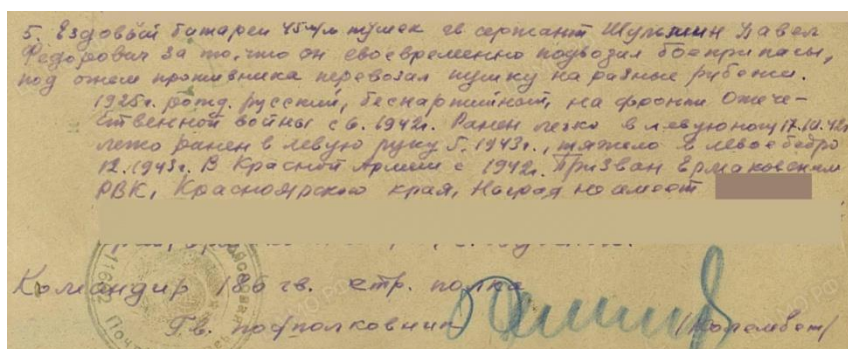 5. Ездовый батареи 45 м/м пушек гв сержант Шульмин Павел
Федорович за то, что он своевременно подвозил боеприпасы,
под огнем противника перевозил пушку на разные рубежи.
1925г. рожд. русский, беспартийный, на фронте Отече-
ственной войны с 6.1942г. Ранен легко в левую ногу 17.10.42г
легко ранен в левую руку 5.1943г., тяжело в левое бедро
12.1943г. В Красной Армии с 1942г. Призван Ермаковским
РВК, Красноярского края, Наград не имеет
Командир 186 гв. стр. полка
Гв. подполковник